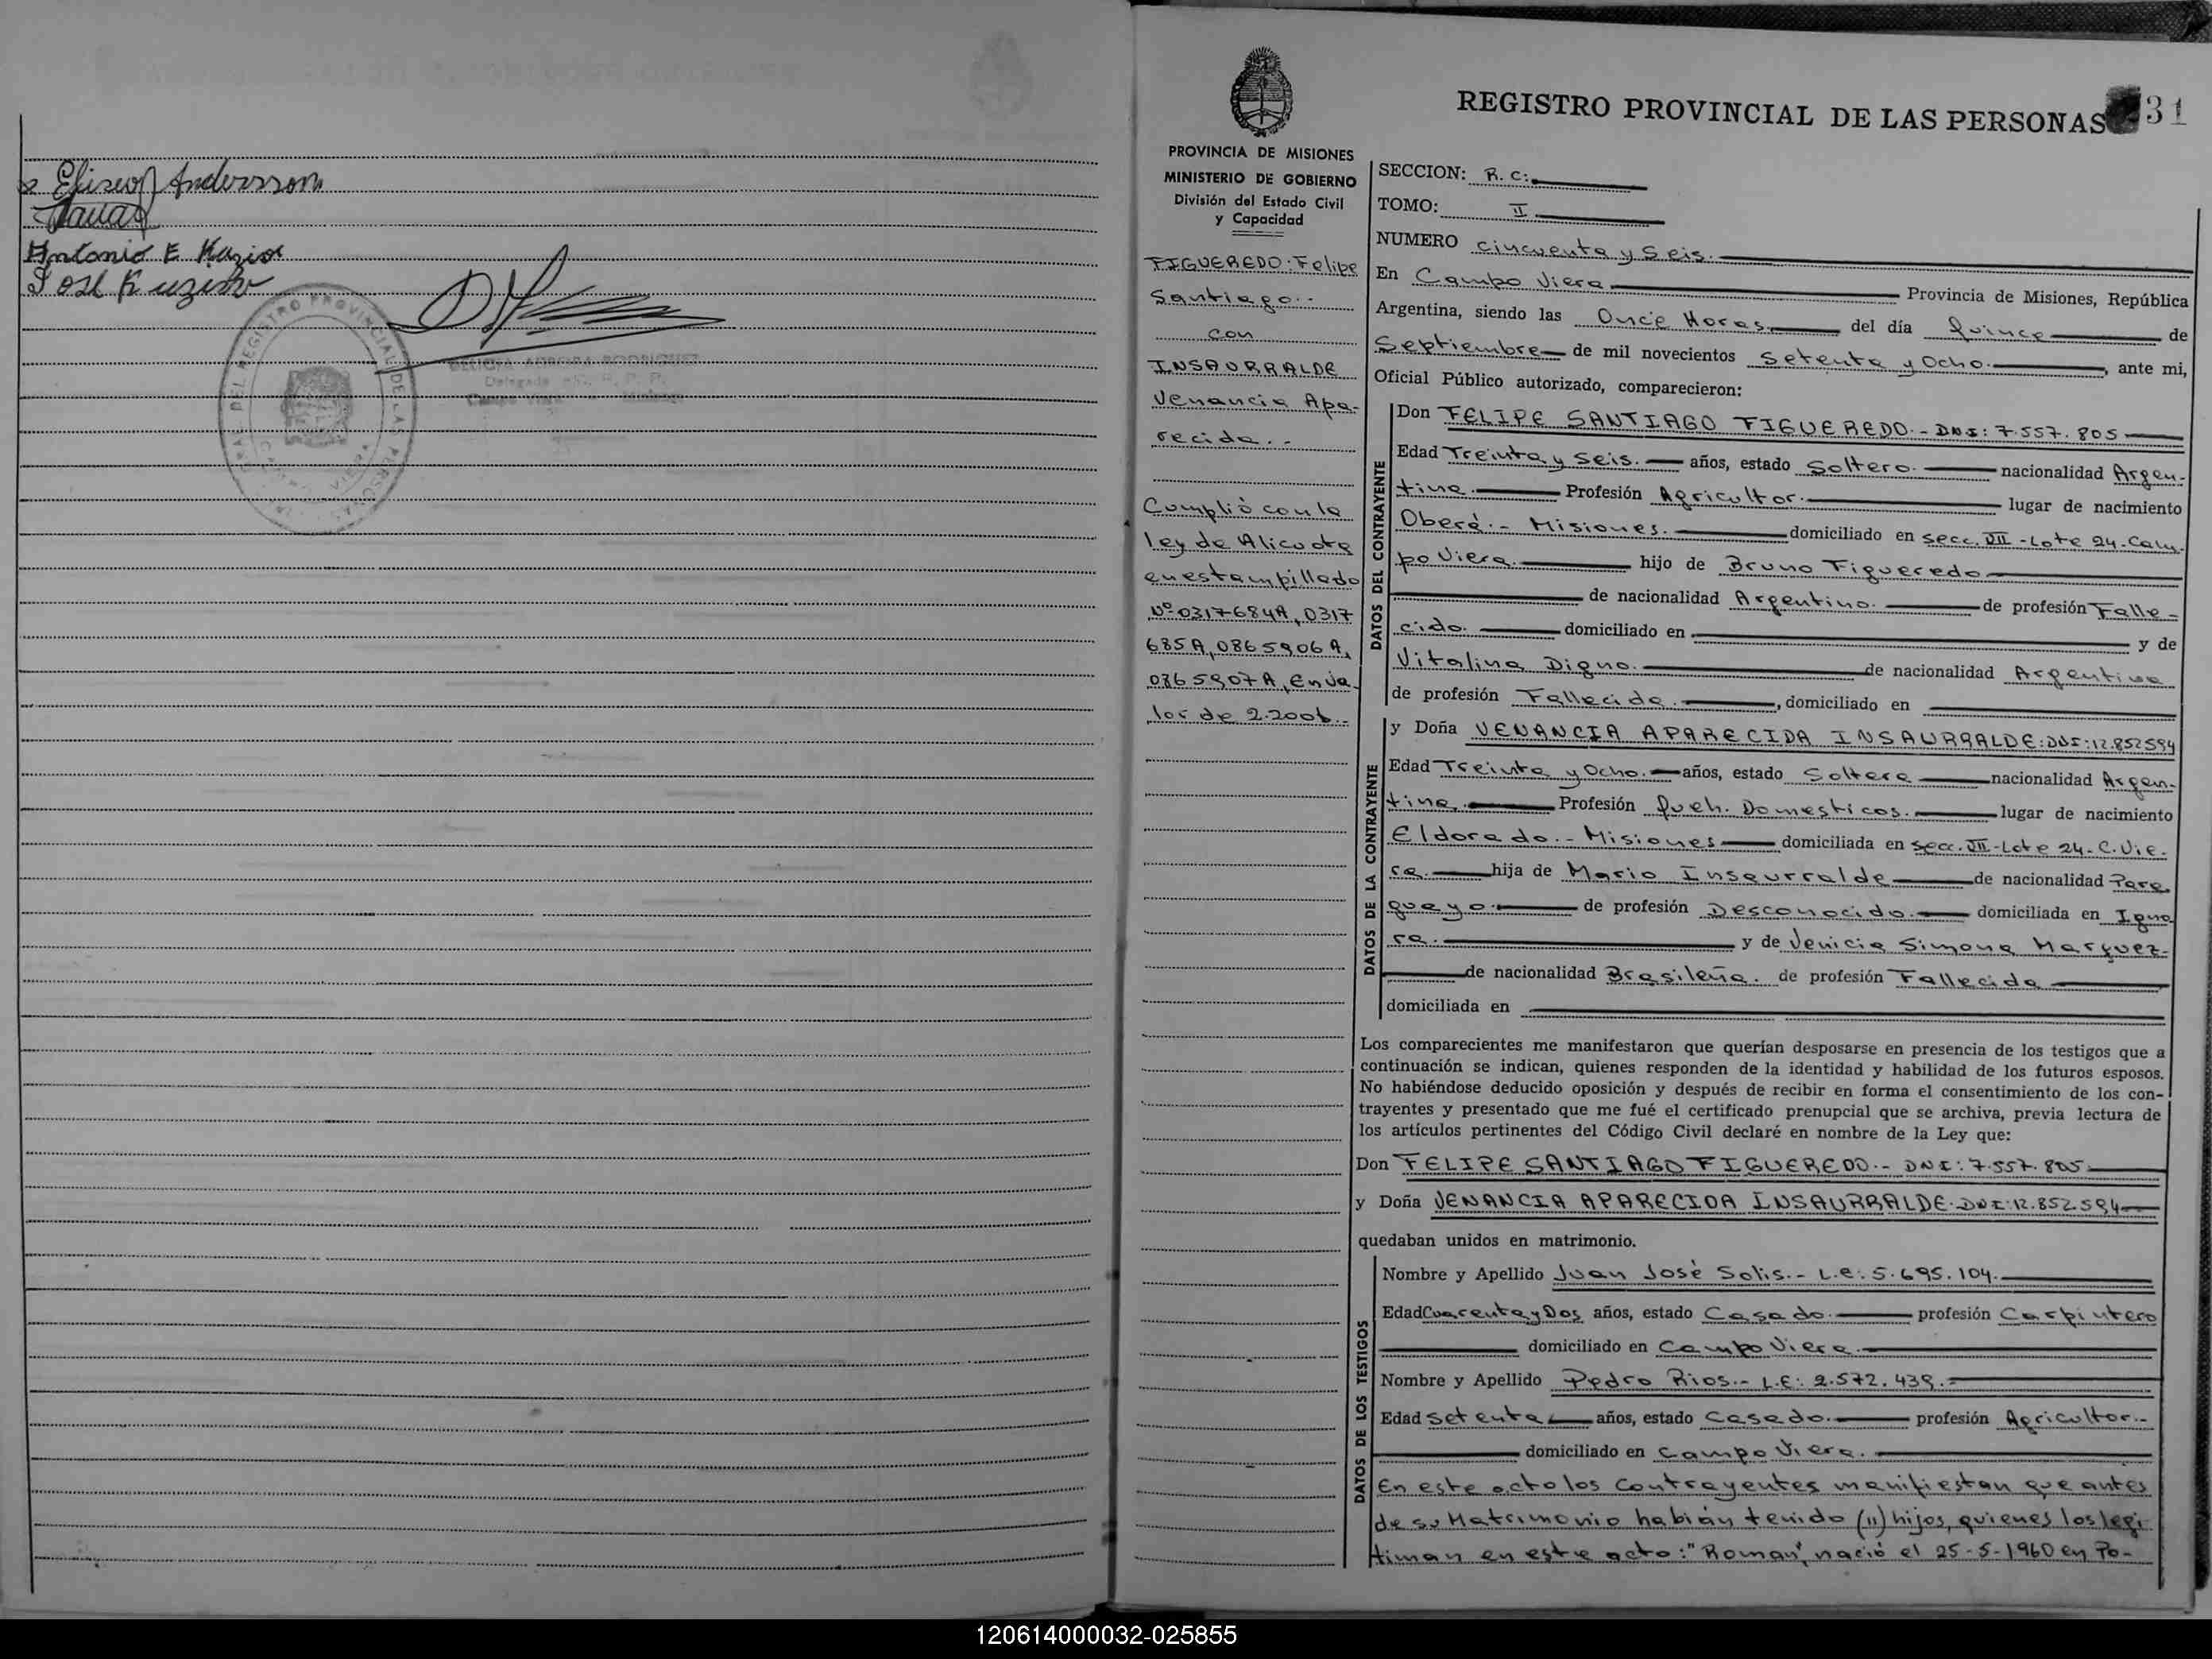 Eliseo Anderssom
Antonio E. Kazior
José Kuzimo
REGISTRO PROVINCIAL DE LAS PERSONAS
CAMPO VIERA
DELICIA AURORA RODRIGUEZ
Campo Viera - Misiones
REGISTRO PROVINCIAL DE LAS PERSONAS 31
PROVINCIA DE MISIONES
MINISTERIO DE GOBIERNO
División del Estado Civil
y Capacidad
FIGUEREDO: Felipe
Santiago.-
con
INSAURRALDE
Venancia Apa-
recida.-
Cumplió con la
ley de Alicuota
en estampillado
Nº 0317684A, 0317
685A, 0865906A,
0865907A, En va-
lor de 2.200b.-
SECCION: R. C:
TOMO: II
NUMERO cincuenta y seis.
En Campo Viera Provincia de Misiones, República
Argentina, siendo las Once Horas. del día Quince de
Septiembre de mil novecientos setenta y Ocho. , ante mi,
Oficial Público autorizado, comparecieron:
DATOS DEL CONTRAYENTE
Don FELIPE SANTIAGO FIGUEREDO.- DNI: 7.557.805
Edad Treinta y seis. años, estado Soltero. nacionalidad Argen-
tina. Profesión Agricultor. lugar de nacimiento
Oberá.- Misiones. domiciliado en secc. VII -Lote 24. Cam-
po Viera. hijo de Bruno Figueredo
de nacionalidad Argentino. de profesión Falle-
cido. domiciliado en y de
Vitalina Digno. de nacionalidad Argentina
de profesión Fallecida. , domiciliado en
DATOS DE LA CONTRAYENTE
y Doña VENANCIA APARECIDA INSAURRALDE: DNI: 12.852594
Edad Treinta y Ocho. años, estado Soltera nacionalidad Argen-
tina. Profesión Queh. Domesticos. lugar de nacimiento
Eldorado.- Misiones domiciliada en secc. VII-Lote 24-C. Vie-
ra. hija de Mario Insaurralde de nacionalidad Para
guayo. de profesión Desconocido. domiciliada en Igno
ra. y de Venicia Simona Marquez-
de nacionalidad Brasileña. de profesión Fallecida
domiciliada en
Los comparecientes me manifestaron que querían desposarse en presencia de los testigos que a
continuación se indican, quienes responden de la identidad y habilidad de los futuros esposos.
No habiéndose deducido oposición y después de recibir en forma el consentimiento de los con-
trayentes y presentado que me fué el certificado prenupcial que se archiva, previa lectura de
los artículos pertinentes del Código Civil declaré en nombre de la Ley que:
Don FELIPE SANTIAGO FIGUEREDO.- DNI: 7.557.805
y Doña VENANCIA APARECIDA INSAURRALDE. DNI: 12.852.594
quedaban unidos en matrimonio.
DATOS DE LOS TESTIGOS
Nombre y Apellido Juan José Solis.- L.e: 5.695.104.
Edad Cuarenta y Dos años, estado Casado. profesión Carpintero
domiciliado en Campo Viera.
Nombre y Apellido Pedro Rios.- L.E: 2.572.439.-
Edad setenta años, estado Casado. profesión Agricultor.-
domiciliado en Campo Viera.
En este acto los contrayentes manifiestan que antes
de su Matrimonio habián tenido (11) hijos, quienes los legi
timan en este acto: "Roman", nació el 25-5-1960 en Po-
120614000032-025855